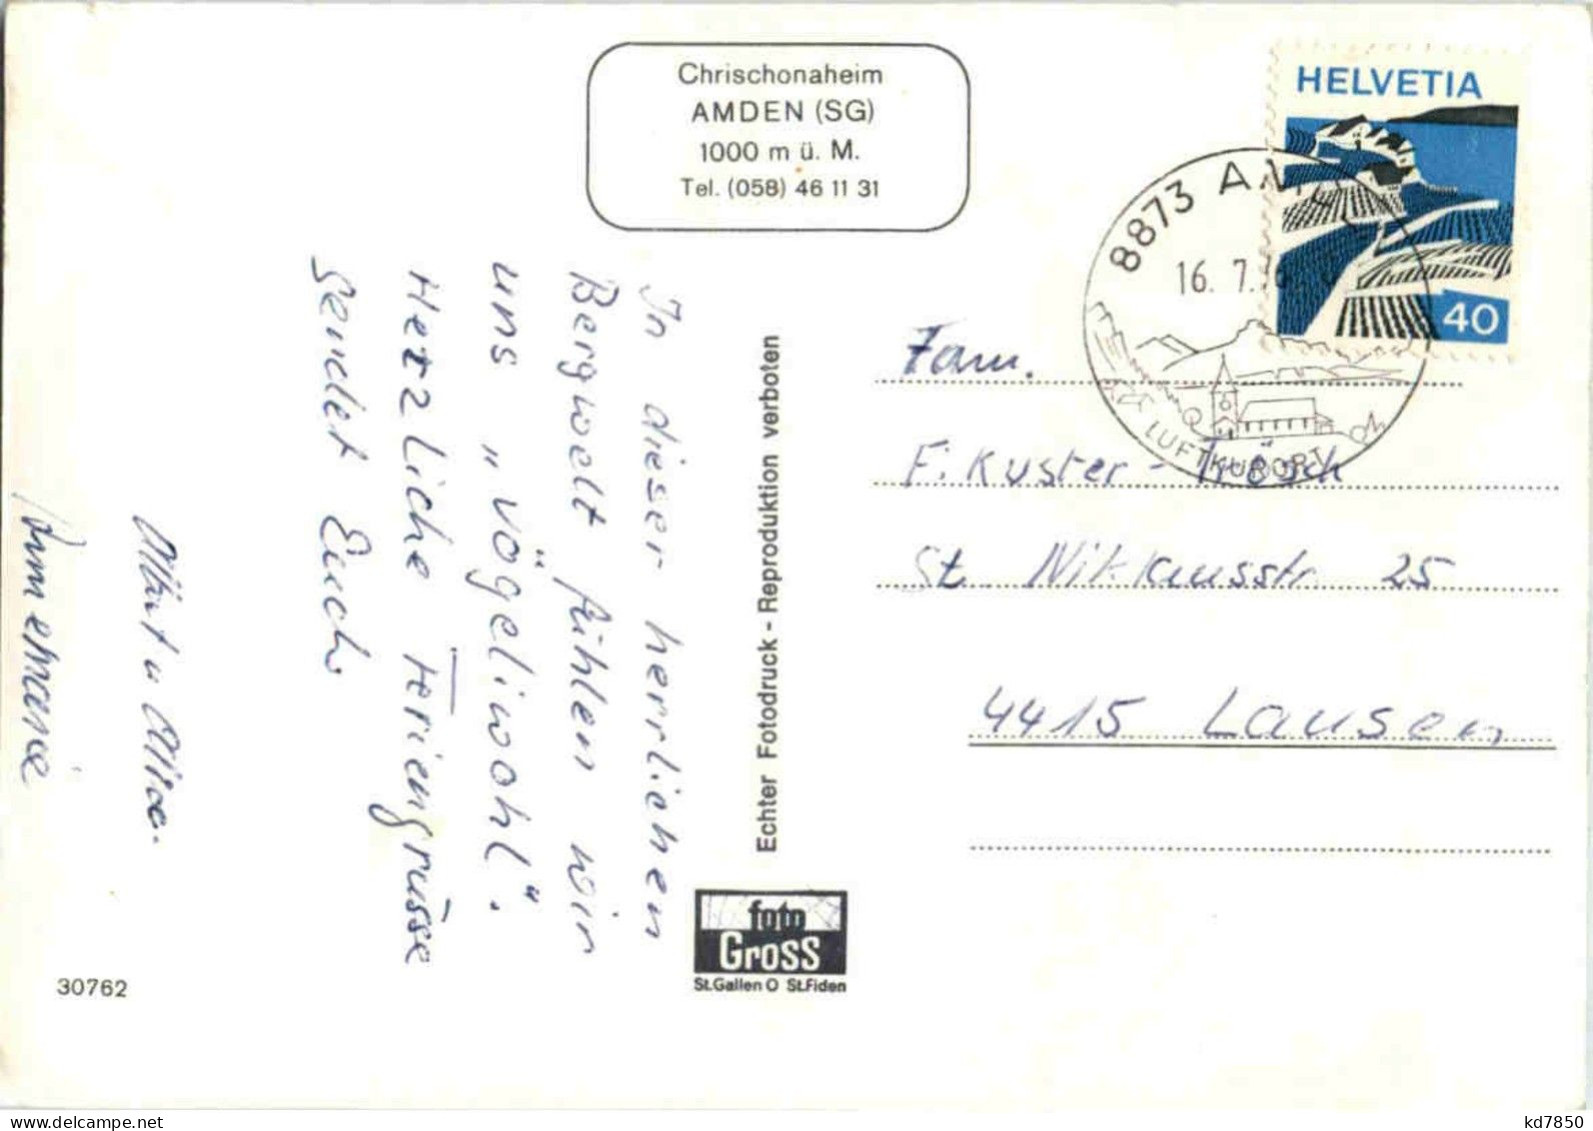 Chrischonaheim
AMDEN (SG)
1000 m ü. M.
Tel. (058) 46 11 31
HELVETIA
40
8873 A
16. 7.
LUFTKURORT
In dieser herrlichen
Bergwelt fühlen wir
uns „vögeliwohl“.
Herzliche Feriengrüsse
Sendet Euch
Albert u Alice.
Annemarie
Echter Fotodruck - Reproduktion verboten
foto
Gross
St.Gallen O St.Fiden
30762
Fam.
F. Kuster -
St. Niklausstr. 25
4415 Lausen
www.delcampe.net
kd7850